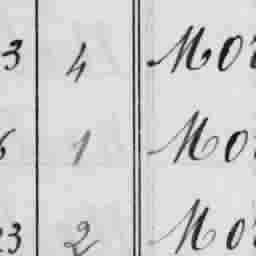 3 4 Mo
6 1 Mo
23 2 Mo